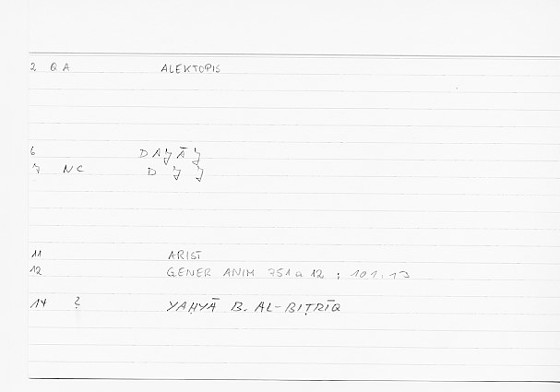 2 QA ALEKTOPIS
6 DAJĀJ
7 NC D J J
11 ARIST
12 GENER ANIM 751a12 ; 101.13
14 ? YAḤYĀ B. AL-BIṬRĪQ